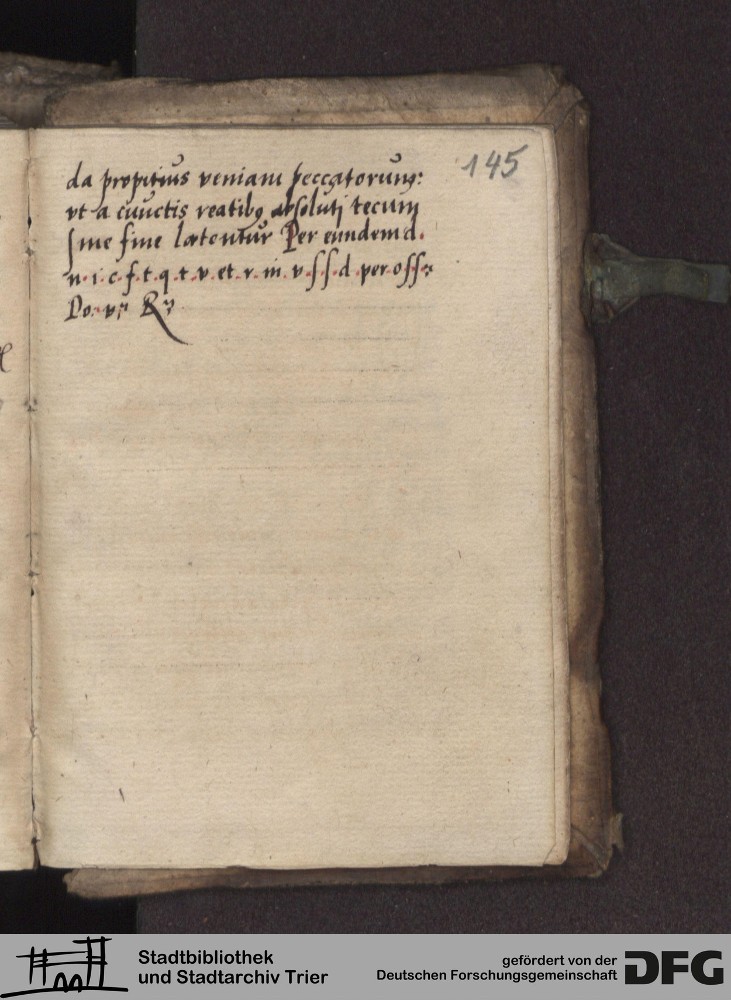 145
da propitius veniam peccatorum:
vt a cunctis reatibꝰ absoluti tecum
sine fine lætentur Per eundem d.
n. i. c. f. t. q. t. v. et. r. in. v. s. s. d. per. o. s. s.
Do. v.
Stadtbibliothek
und Stadtarchiv Trier
gefördert von der
Deutschen Forschungsgemeinschaft
DFG